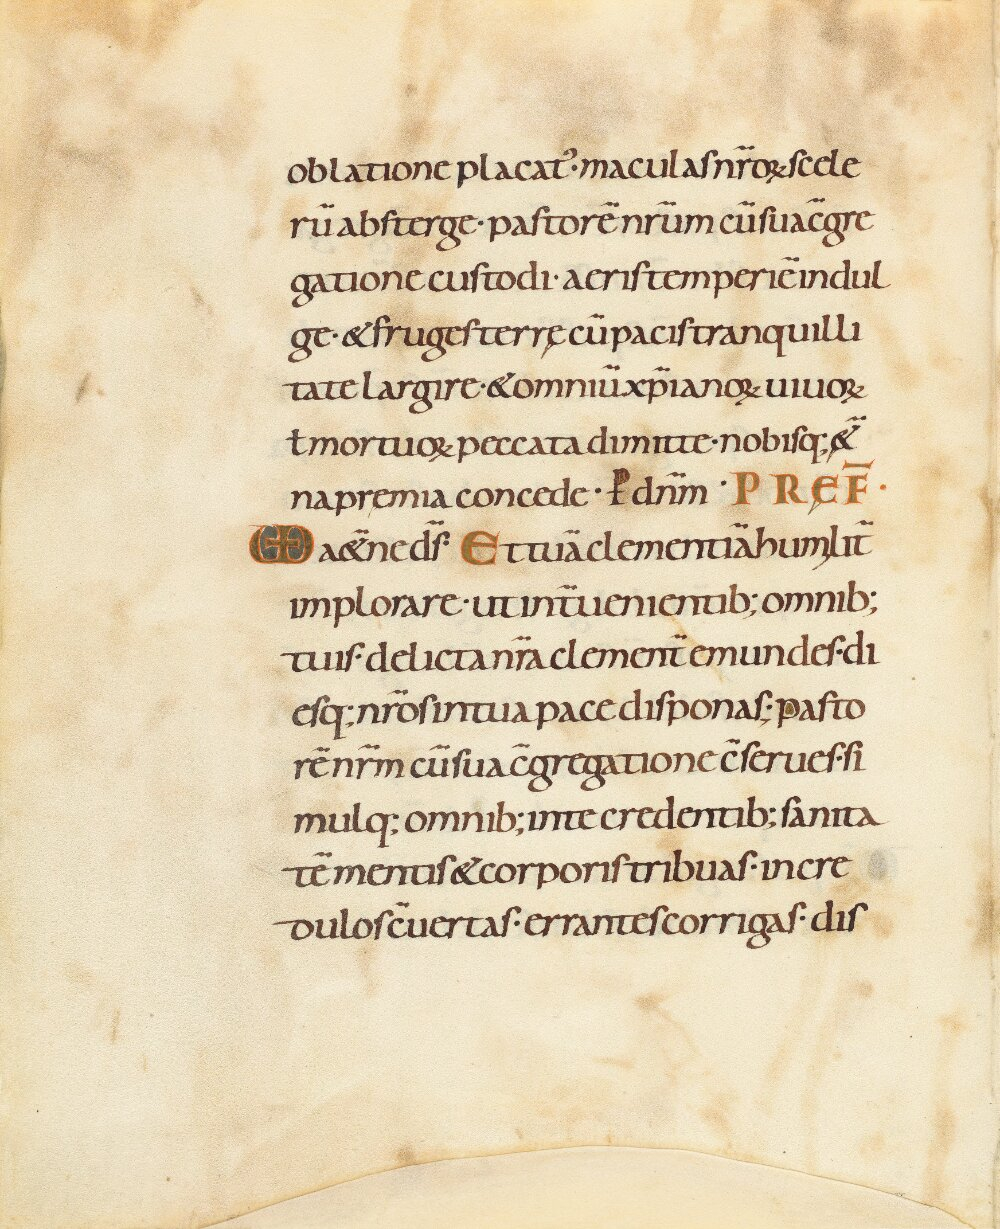 oblatione placatꝰ· maculas nr̃oꝝ scele
rũ absterge· pastorẽ nrũm cũ sua c̃gre
gatione custodi· aeris temperiẽ indul
ge· & fruges terrę cũ pacis tranquilli
tate largire· & omniũ xp̃ianoꝝ uiuoꝝ
ł mortuoꝝ peccata dimitte· nobisq; &̃
na premia concede· P dnm̃· PREF̄·
Ma&̃ne ds̃ Et tuã clementiã humılit̃
implorare· ut int̃uenientib; omnib;
tuis· delicta nr̃a clement̃ emundes· di
esq; nr̃os in tua pace disponas; pasto
rẽ nrm̃ cũ sua c̃gregatione c̃serues· si
mulq; omnib; in te credentib; sanita
tẽ mentis & corporis tribuas· incre
dulos c̃uertas· errantes corrigas· dis